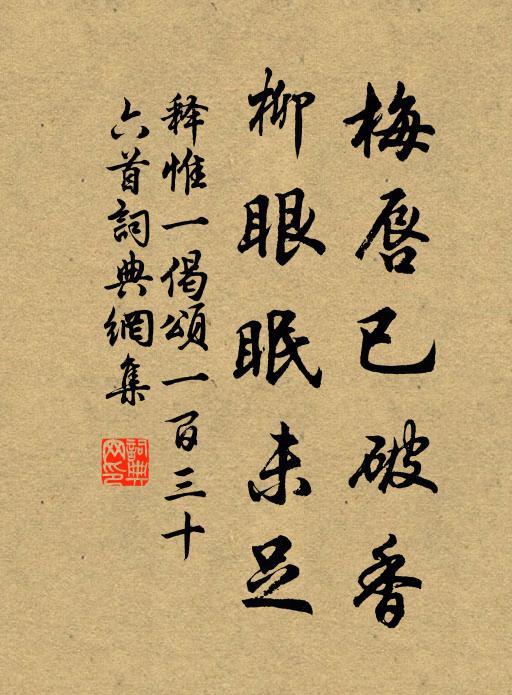 梅唇已破香
柳眼眠未足
释惟一偈頌一百三十
六首詞典網集
詞典
网印